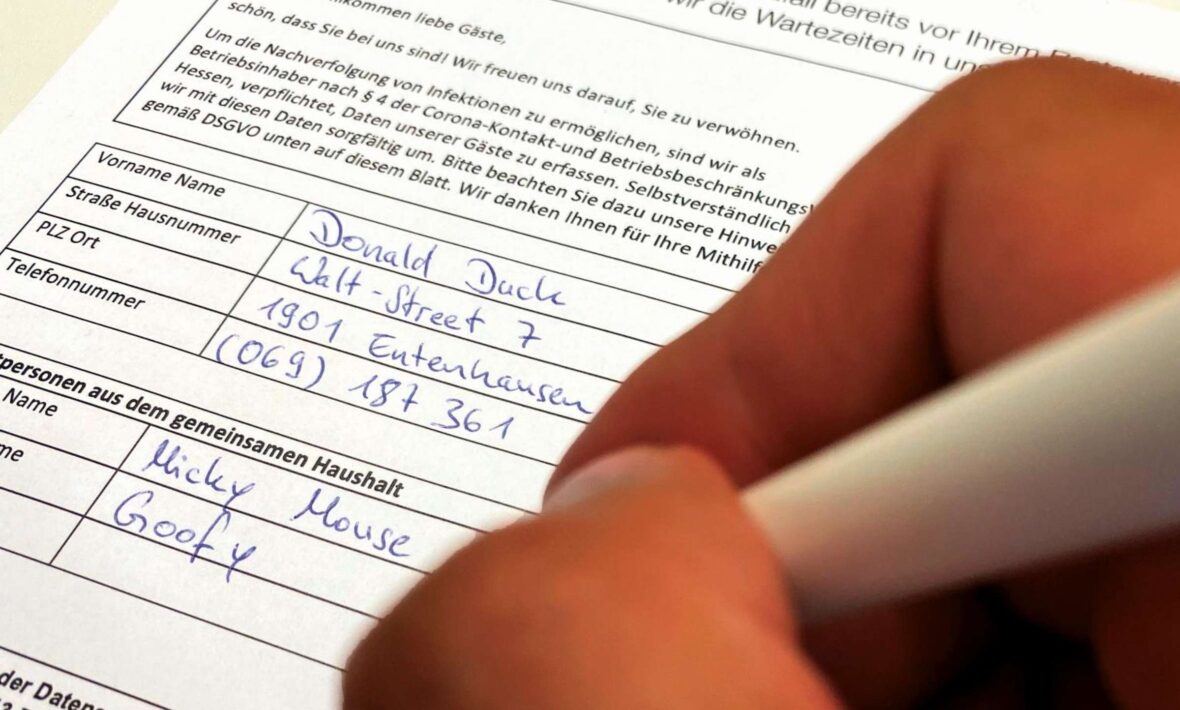 bereits vor Ihrem
wir die Wartezeiten in
kommen liebe Gäste,
schön, dass Sie bei uns sind! Wir freuen uns darauf, Sie zu verwöhnen.
Um die Nachverfolgung von Infektionen zu ermöglichen, sind wir als
Betriebsinhaber nach § 4 der Corona-Kontakt-und Betriebsbeschränkungs
Hessen, verpflichtet, Daten unserer Gäste zu erfassen. Selbstverständlich
wir mit diesen Daten sorgfältig um. Bitte beachten Sie dazu unsere Hinwe
gemäß DSGVO unten auf diesem Blatt. Wir danken Ihnen für Ihre Mithilf
Vorname Name Donald Duck
Straße Hausnummer Walt-Street 7
PLZ Ort 1901 Entenhausen
Telefonnummer (069) 187 361
personen aus dem gemeinsamen Haushalt
Name Micky Mouse
me Goofy
der Daten